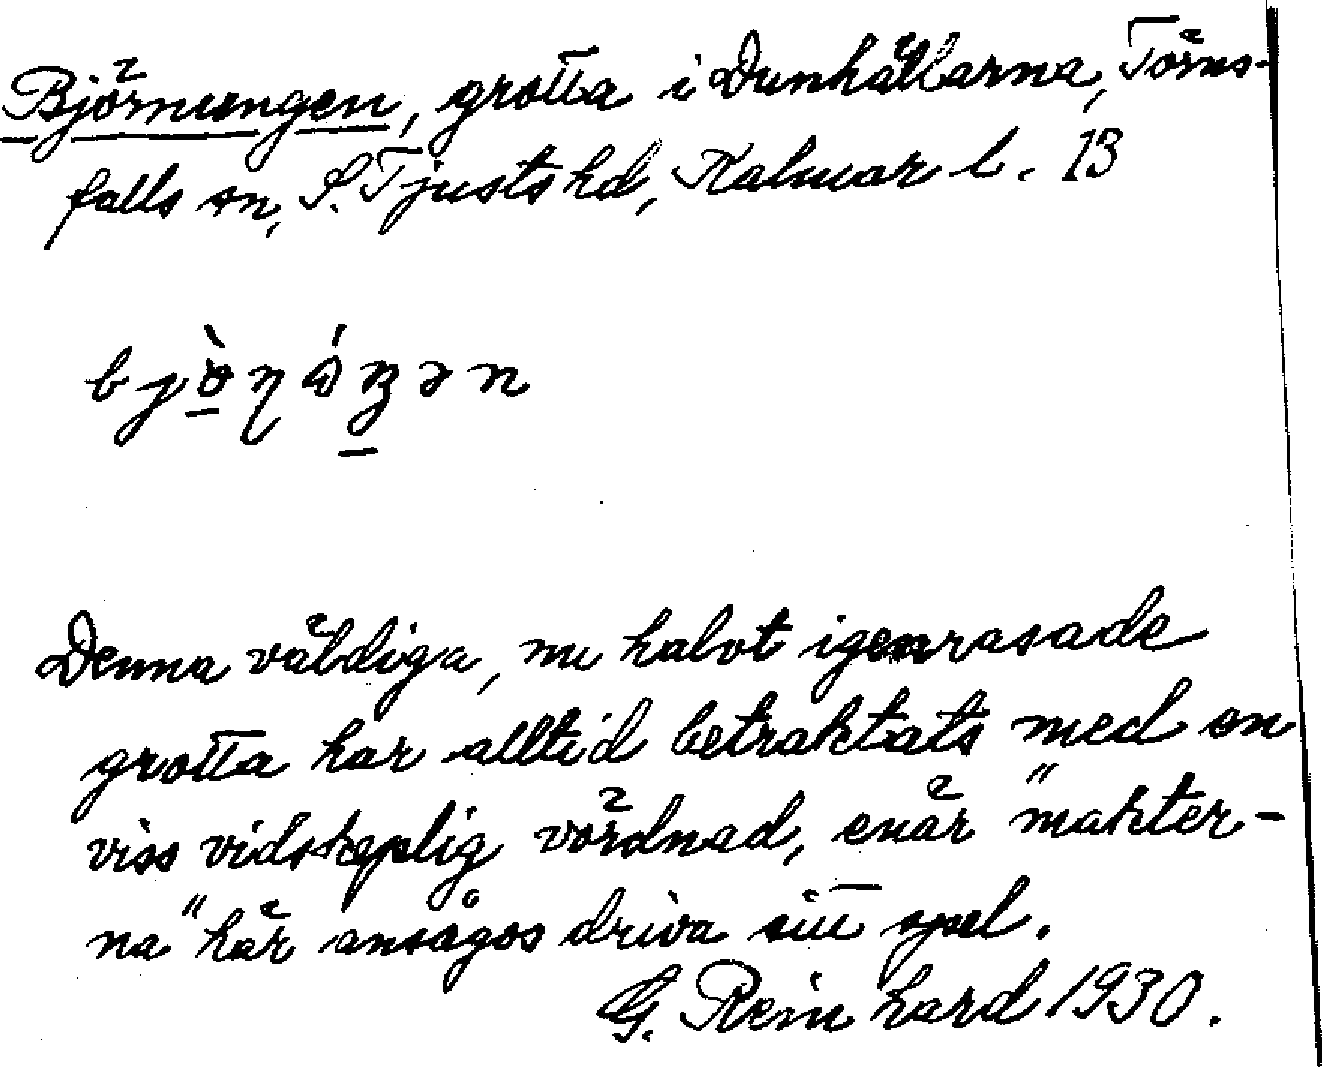 Björnungen, grotta i Dunhällarna, Törns-
falls sn, S. Tjusts hd, Kalmar l. 13
Denna väldiga, nu halvt igenrasade
grotta har alltid betraktats med en
viss vidskeplig vördnad, enär "makter-
na" här ansågos driva sitt spel.
G. Reinhard 1930.